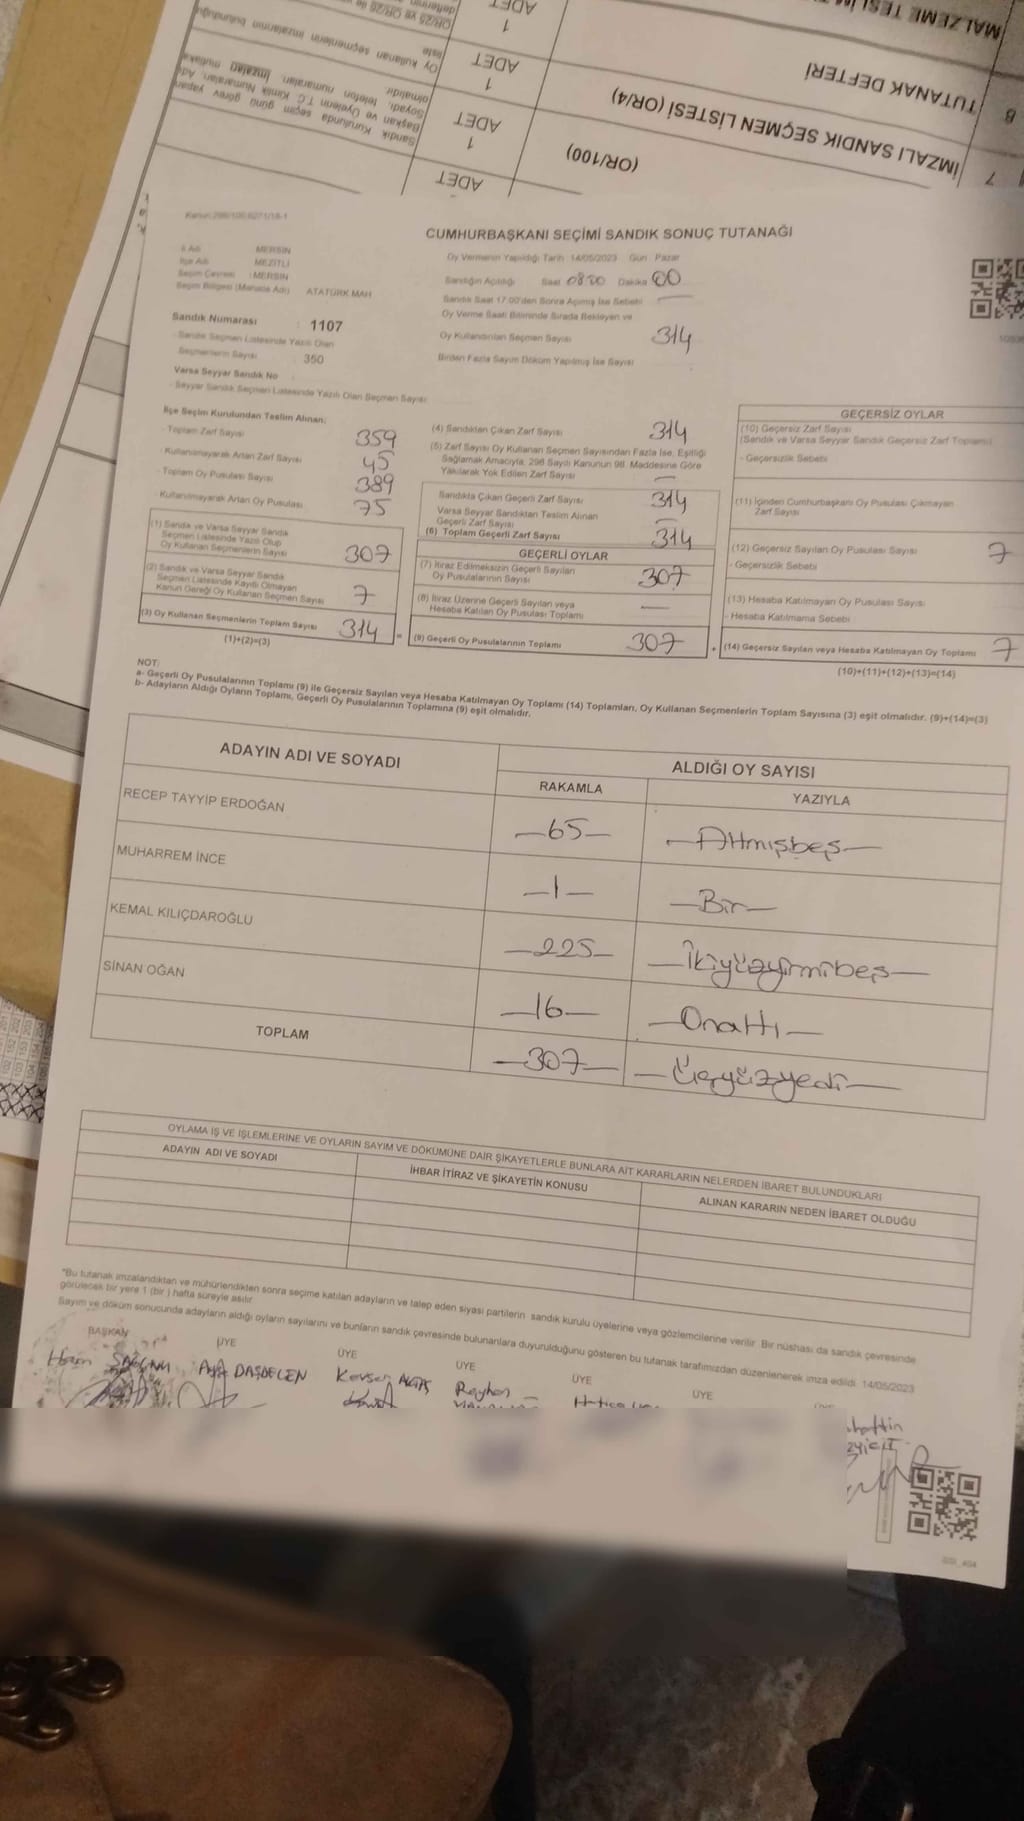 MALZEME TESLİM
8 TUTANAK DEFTERİ 1 ADET
7 İMZALI SANDIK SEÇMEN LİSTESİ (OR/4) 1 ADET
Oy kullanan seçmenlerin imzalarının bulunduğu liste
(OR/100) 1 ADET
Sandık Kurulunda seçim günü görev yapan
Başkan ve Üyelerin T.C. Kimlik Numaraları, Adı
Soyadı, telefon numaraları, İmzaları mutlaka
olmalıdır.
ADET
CUMHURBAŞKANI SEÇİMİ SANDIK SONUÇ TUTANAĞI
İl Adı MERSİN
İlçe Adı MEZİTLİ
Seçim Çevresi : MERSİN
Seçim Bölgesi (Mahalle Adı) ATATÜRK MAH
Oy Vermenin Yapıldığı Tarih : 14/05/2023 Gün : Pazar
Sandığın Açıldığı Saat 08:00 Dakika 00
Sandık Saat 17:00'den Sonra Açımış İse Sebebi —
Oy Verme Saati Bitiminde Sırada Bekleyen ve
Oy Kullandırılan Seçmen Sayısı 314
Birden Fazla Sayım Döküm Yapılmış İse Sayısı
Sandık Numarası : 1107
- Sandık Seçmen Listesinde Yazılı Olan
Seçmenlerin Sayısı : 350
Varsa Seyyar Sandık No
- Seyyar Sandık Seçmen Listesinde Yazılı Olan Seçmen Sayısı:
İlçe Seçim Kurulundan Teslim Alınan;
- Toplam Zarf Sayısı 359
- Kullanılmayarak Artan Zarf Sayısı 45
- Toplam Oy Pusulası Sayısı 389
- Kullanılmayarak Artan Oy Pusulası 75
(1) Sandık ve Varsa Seyyar Sandık
Seçmen Listesinde Yazılı Olup
Oy Kullanan Seçmenlerin Sayısı 307
(2) Sandık ve Varsa Seyyar Sandık
Seçmen Listesinde Kayıtlı Olmayan
Kanun Gereği Oy Kullanan Seçmen Sayısı 7
(3) Oy Kullanan Seçmenlerin Toplam Sayısı 314 =
(1)+(2)=(3)
(4) Sandıktan Çıkan Zarf Sayısı 314
(5) Zarf Sayısı Oy Kullanan Seçmen Sayısından Fazla İse, Eşitliği
Sağlamak Amacıyla, 298 Sayılı Kanunun 98. Maddesine Göre
Yakılarak Yok Edilen Zarf Sayısı —
Sandıkta Çıkan Geçerli Zarf Sayısı 314
Varsa Seyyar Sandıktan Teslim Alınan
Geçerli Zarf Sayısı —
(6) Toplam Geçerli Zarf Sayısı 314
GEÇERLİ OYLAR
(7) İtiraz Edilmeksizin Geçerli Sayılan
Oy Pusulalarının Sayısı 307
(8) İtiraz Üzerine Geçerli Sayılan veya
Hesaba Katılan Oy Pusulası Toplamı —
(9) Geçerli Oy Pusulalarının Toplamı 307 +
GEÇERSİZ OYLAR
(10) Geçersiz Zarf Sayısı
(Sandık ve Varsa Seyyar Sandık Geçersiz Zarf Toplamı)
- Geçersizlik Sebebi
(11) İçinden Cumhurbaşkanı Oy Pusulası Çıkmayan
Zarf Sayısı
(12) Geçersiz Sayılan Oy Pusulası Sayısı 7
- Geçersizlik Sebebi
(13) Hesaba Katılmayan Oy Pusulası Sayısı
- Hesaba Katılmama Sebebi
(14) Geçersiz Sayılan veya Hesaba Katılmayan Oy Toplamı 7
(10)+(11)+(12)+(13)=(14)
NOT:
a- Geçerli Oy Pusulalarının Toplamı (9) ile Geçersiz Sayılan veya Hesaba Katılmayan Oy Toplamı (14) Toplamları, Oy Kullanan Seçmenlerin Toplam Sayısına (3) eşit olmalıdır. (9)+(14)=(3)
b- Adayların Aldığı Oyların Toplamı, Geçerli Oy Pusulalarının Toplamına (9) eşit olmalıdır.
ADAYIN ADI VE SOYADI ALDIĞI OY SAYISI
RAKAMLA YAZIYLA
RECEP TAYYİP ERDOĞAN —65— —Altmışbeş—
MUHARREM İNCE —1— —Bir—
KEMAL KILIÇDAROĞLU —225— —İkiyüzyirmibeş—
SİNAN OĞAN —16— —Onaltı—
TOPLAM —307— —Üçyüzyedi—
OYLAMA İŞ VE İŞLEMLERİNE VE OYLARIN SAYIM VE DÖKÜMÜNE DAİR ŞİKAYETLERLE BUNLARA AİT KARARLARIN NELERDEN İBARET BULUNDUKLARI
ADAYIN ADI VE SOYADI İHBAR İTİRAZ VE ŞİKAYETİN KONUSU ALINAN KARARIN NEDEN İBARET OLDUĞU
*Bu tutanak imzalandıktan ve mühürlendikten sonra seçime katılan adayların ve talep eden siyasi partilerin sandık kurulu üyelerine veya gözlemcilerine verilir. Bir nüshası da sandık çevresinde
görülecek bir yere 1 (bir ) hafta süreyle asılır.
Sayım ve döküm sonucunda adayların aldığı oyların sayılarını ve bunların sandık çevresinde bulunanlara duyurulduğunu gösteren bu tutanak tarafımızdan düzenlenerek imza edildi. 14/05/2023
BAŞKAN ÜYE ÜYE ÜYE ÜYE ÜYE
DAŞDELEN Kevser Reyhan